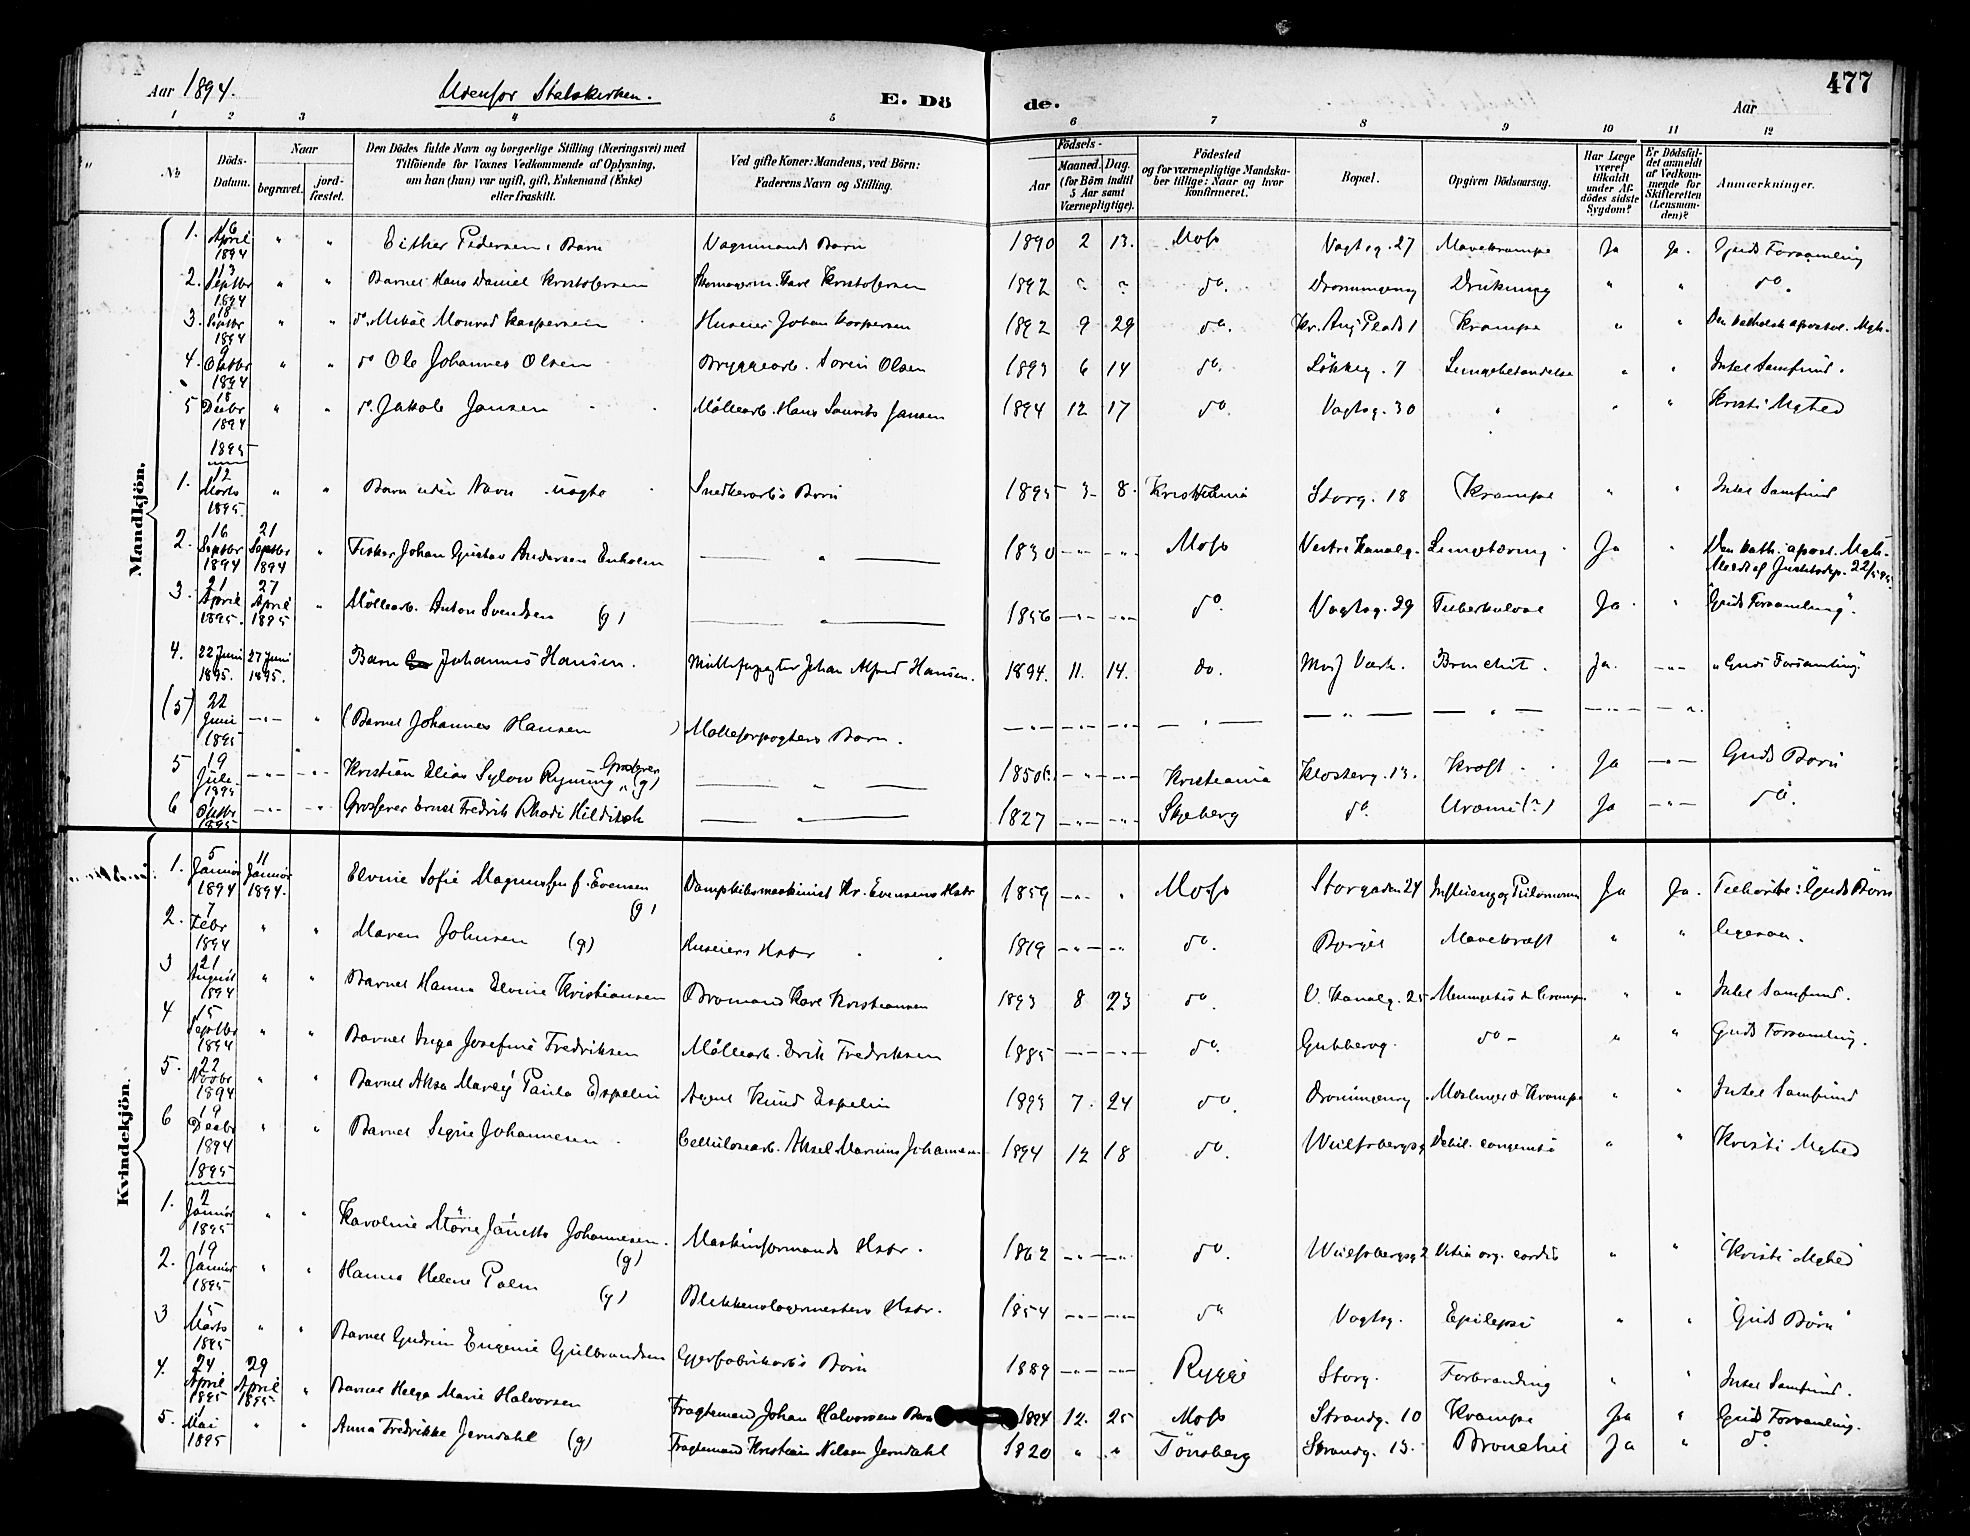 477
Aar 1894. Udenfor Statskirken. E. Döde. Aar
1 2 3 4 5 6 7 8 9 10 11 12
No Döds-Datum. Naar begravet. jordfæstet. Den Dödes fulde Navn og borgerlige Stilling (Næringsvei) med Tilföiende for Voxnes Vedkommende af Oplysning, om han (hun) var ugift, gift, Enkemand (Enke) eller fraskilt. Ved gifte Koner: Mandens, ved Börn: Faderens Navn og Stilling. Födsels- Aar Maaned. Dag. (for Börn indtil 5 Aar samt Værnepligtige). Födested og for værnepligtige Mandskaber tillige: Naar og hvor konfirmeret. Bopæl. Opgiven Dödsaarsag. Har Læge været tilkaldt under Afdödes sidste Sygdom? Er Dödsfaldet anmeldt af Vedkommende for Skifteretten (Lensmanden)? Anmærkninger.
Mandkjön.
1. 6 April 1894 " " Either Pedersen, Barn Vognmands Barn 1890 2 13. Moss Vogtsg. 27 Mavekrampe Ja Ja. Guds Forsamling
2. 13 Septbr 1894 " " Barnet Hans Daniel Kristofersen Skomagerm. Karl Kristofersen 1892 " " do. Dronningeng Drukning " " do.
3. 18 Septbr 1894 " " do. Mikal Monrad Kaspersen Huseier Johan Kaspersen 1892 9 29 do. Kr. Aug. Plads 1 Krampe " " Den katholsk apostol. Mgh.
4. 9 Oktbr 1894 " " do Ole Johannes Olsen Bryggearb. Soren Olsen 1893 6 14 do. Løkkeg. 7 Lungebetændelse " " Intet Samfund.
5 18 Decbr 1894 " " do. Jakob Jansen Möllearb. Hans Laurits Jansen 1894 12 17 do. Vogtsg. 30 " " " Kristi Mghed
1895
1. 12 Marts 1895. " " Barn uden Navn uægte Snedkerarb's Barn 1895 3 8. Kristiania Storg. 18 Krampe " " Intet Samfund
2. 16 Septbr 1894 21 Septbr 1894 " Fisker Johan Gustav Andersen Enholm — " — 1830 -"- -"- Moss Vestre Kanalg. Lungetæring Ja " Den kath. apost. Mgh.
3. 21 April 1895. 27 April 1895 " Möllearb. Anton Svendsen (g) — " — 1856 -"- -"- do. Vogtsg. 29 Tuberkulose Ja " "Guds Forsamling".
4. 22 Juni 1895. 27 Juni 1895. Barn Johannes Hansen. Johan Alfred Hansen. 1894. 11. 14. do. Moss Værk. Bronchit. Ja. -"- "Guds Forsamling."
(5) 22 Juni 1895 -"- " (Barnet Johannes Hansen) Mølleforpagters Barn. -"- -"- -"- — " — — " — — " — -"- -"-
5 19 Juli 1895 -"- -"- Kristian Elias Sylow Ryming Grosserer (g) — " — 1850 -"- -"- Kristiania Klosterg. 13. Kræft Ja -"- Guds Børn
6 1 Oktbr 1895 -"- -"- Grosserer Ernst Fredrik Rhode Hilditch — " — 1827 -"- -"- Skjeberg do. Uræmi (?) Ja -"- do.
Kvindekjön.
1. 5 Januar 1894 11 Januar 1894. Elvine Sofie Magnussen f. Evensen (g) Dampskibsmaskinist Hr. Evensens Hstr 1859 -"- " Moss Storgaden 24 Ja Ja. Tilhörte: "Guds Börn
2. 7 Febr 1894 " " Maren Johnsen (g) Huseiers Hstr 1819 -"- -"- do. Berget Mavekræft " "
3 21 August 1894 " " Barnet Hanna Elvine Kristiansen Bromand Karl Kristiansen 1893 8 23 do. V. Kanalg. 25 " " Intet Samfund.
4 15 Septbr 1894 " " Barnet Inga Josefine Fredriksen Möllearb. Erik Fredriksen 1885 -"- -"- do. Gubberog. do - " " Guds Forsamling.
5. 22 Novbr 1894 " " Barnet Aksa Marey Paula Espelin Agent Knud Espelin 1893 7. 24 do. Dronningeng Meslinger & Krampe " " Intet Samfund
6 19 Decbr 1894 " " Barnet Signe Johannesen Celluloseearb. Aksel Marinius Johannesen 1894 12 18 do. Wulfsbergsg Debil. congenita " " Kristi Mghed
1895
1. 2 Januar 1895 " " Karoline Marie Janette Johannesen. (g) Maskinformands Hstr. 1862 -"- -"- do. Wulfsbergsg 2 Vitia org. cordis " " "Kristi Mghed"
2. 19 Januar 1895 " " Hanna Helene Palm (g) Blikkenslagermesters Hstr. 1854 -"- -"- do Vogtsg. Epilepsi " " "Guds Børn"
3 15 Marts 1895 " " Barnet Gudrun Eugenie Gulbrandsen Gjerfabrikarb's Barn 1889 -"- -"- Rygge Storg. Forbrænding " " Intet Samfund.
4. 24 April 1895 29 April 1895. " Barnet Helga Marie Halvorsen Fragtemand Johan Halvorsens Barn 1894 12. 25 Moss Strandg. 10 Krampe Ja " Guds Forsamling.
5. 1 Mai 1895 " " Anna Fredrikke Jerndahl (g) Fragtemand Kristian Nilsen Jerndahl 1820 " " Tönsberg Strandg. 13. Bronchit Ja " do.